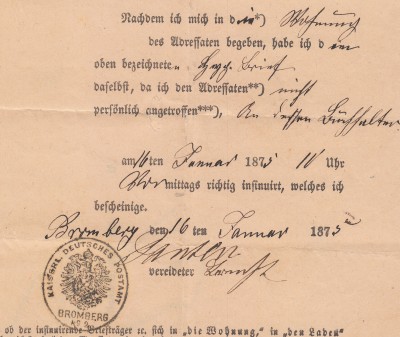 Nachdem ich mich in die*) Wohnung
des Adressaten begeben, habe ich den
oben bezeichneten Brief
daselbst, da ich den Adressaten**) nicht
persönlich angetroffen***), An dessen Buchhalter
am 16ten Januar 1875 10 Uhr
Vormittags richtig insinuirt, welches ich
bescheinige.
Bromberg den 16 ten Januar 1875
vereideter
KAISERL. DEUTSCHES POSTAMT
BROMBERG
ob der insinuirende Briefträger ꝛc. sich in „die Wohnung, in „den Laden"